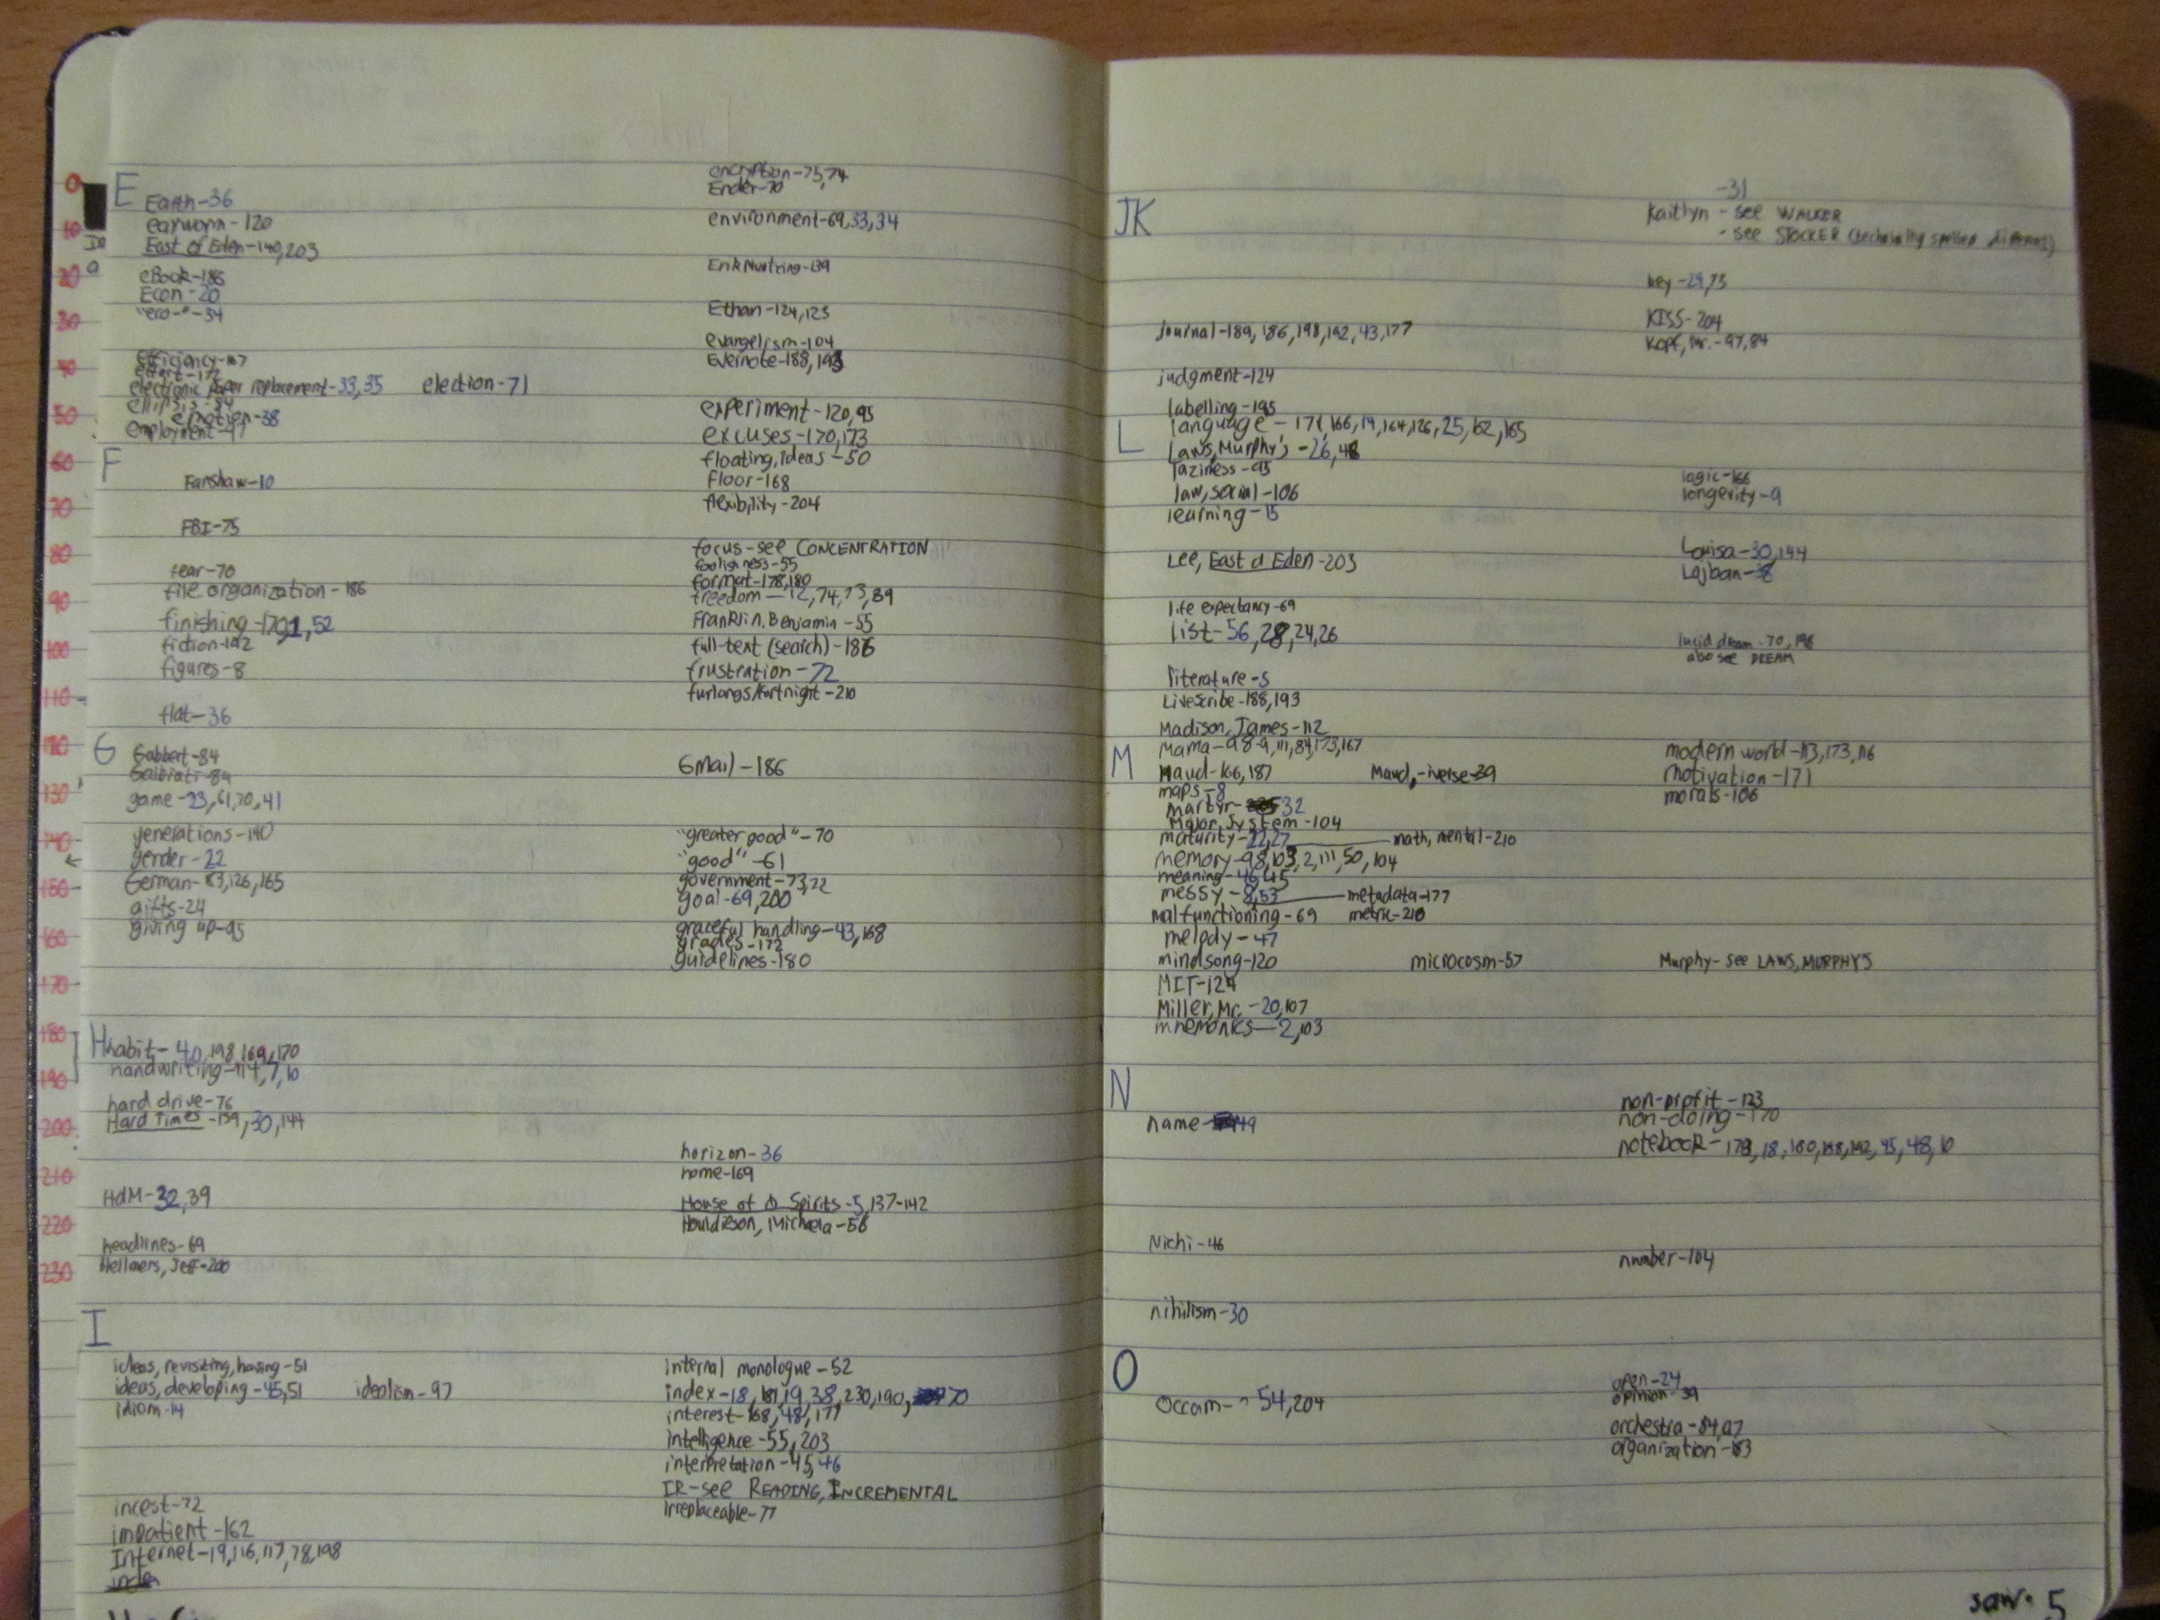 0
10
20
30
40
50
60
70
80
90
100
110
120
130
140
150
160
170
180
190
200
210
220
230
E
Earth-36
earworm-120
East of Eden-140,203
eBook-186
Econ-20
efficiency-
effort-172
electronic paper replacement-33,35 election-71
ellipsis-84
emotion-38
employment-97
encryption-75,74
Ender-70
environment-69,33,34
Ethan-124,123
evangelism-104
Evernote-188,193
experiment-120,95
excuses-170,173
F
Fanshaw-10
FBI-75
fear-70
file organization-186
finishing-170,1,52
fiction-192
figures-8
flat-36
floating, ideas-50
floor-168
flexibility-204
focus-see CONCENTRATION
foolishness-55
format-178,180
freedom-12,74,73,39
Franklin, Benjamin-55
full-text (search)-186
frustration-72
furlongs/fortnight-210
G
Gabbert-84
Galbiati-84
game-23,61,70,41
generations-140
gender-22
German-83,126,165
gifts-24
giving up-95
Gmail-186
"greater good"-70
"good"-61
government-73,72
goal-69,200
graceful handling-43,168
grades-172
guidelines-180
H
habit-40,198,169,170
handwriting-114,7,10
hard drive-76
Hard Times-139,30,144
HdM-32,39
headlines-69
Hellmers, Jeff-200
horizon-36
home-169
House of Spirits-5,137-142
Michaela-56
I
ideas, revisiting, having-51
ideas, developing-45,51 idealism-97
idiom-14
incest-72
impatient-162
Internet-19,116,117,78,198
index
internal monologue-52
index-18,19,38,230,190,70
interest-168,48,177
intelligence-55,203
interpretation-45,46
IR-see READING, INCREMENTAL
irreplaceable-77
JK
journal-189,186,198,192,43,177
judgment-124
-31
Kaitlyn - see WALKER
- see STOCKER (technically spelled different)
key-29,73
KISS-204
Kopf, Mr.-97,84
L
labelling-195
language-171,166,19,164,126,25,162,165
Laws, Murphy's-26,48
laziness-95
law, social-106
learning-15
Lee, East of Eden-203
life expectancy-69
list-56,28,24,26
literature-5
Livescribe-188,193
logic-166
longevity-9
Louisa-30,144
Lojban-38
lucid dream-70,196
also see DREAM
M
Madison, James-112
Mama-98-9,111,84,173,167
Maud-166,187 Maud,-iverse-39
maps-8
martyr-32
Major System-104
maturity-22,27 math, mental-210
memory-98,103,2,111,50,104
meaning-46,45
messy-8,53 metadata-177
malfunctioning-69 metric-210
melody-47
mindsong-120 microcosm-57
MIT-124
Miller, Mr.-20,107
mnemonics-2,103
modern world-113,173,116
motivation-171
morals-106
Murphy-see LAWS, MURPHY'S
N
name-149
Nichi-46
nihilism-30
non-profit-123
non-doing-170
notebook-178,18,180,188,192,45,48,10
number-104
O
Occam-54,204
open-24
opinion-39
orchestra-84,97
organization-183
saw. 5